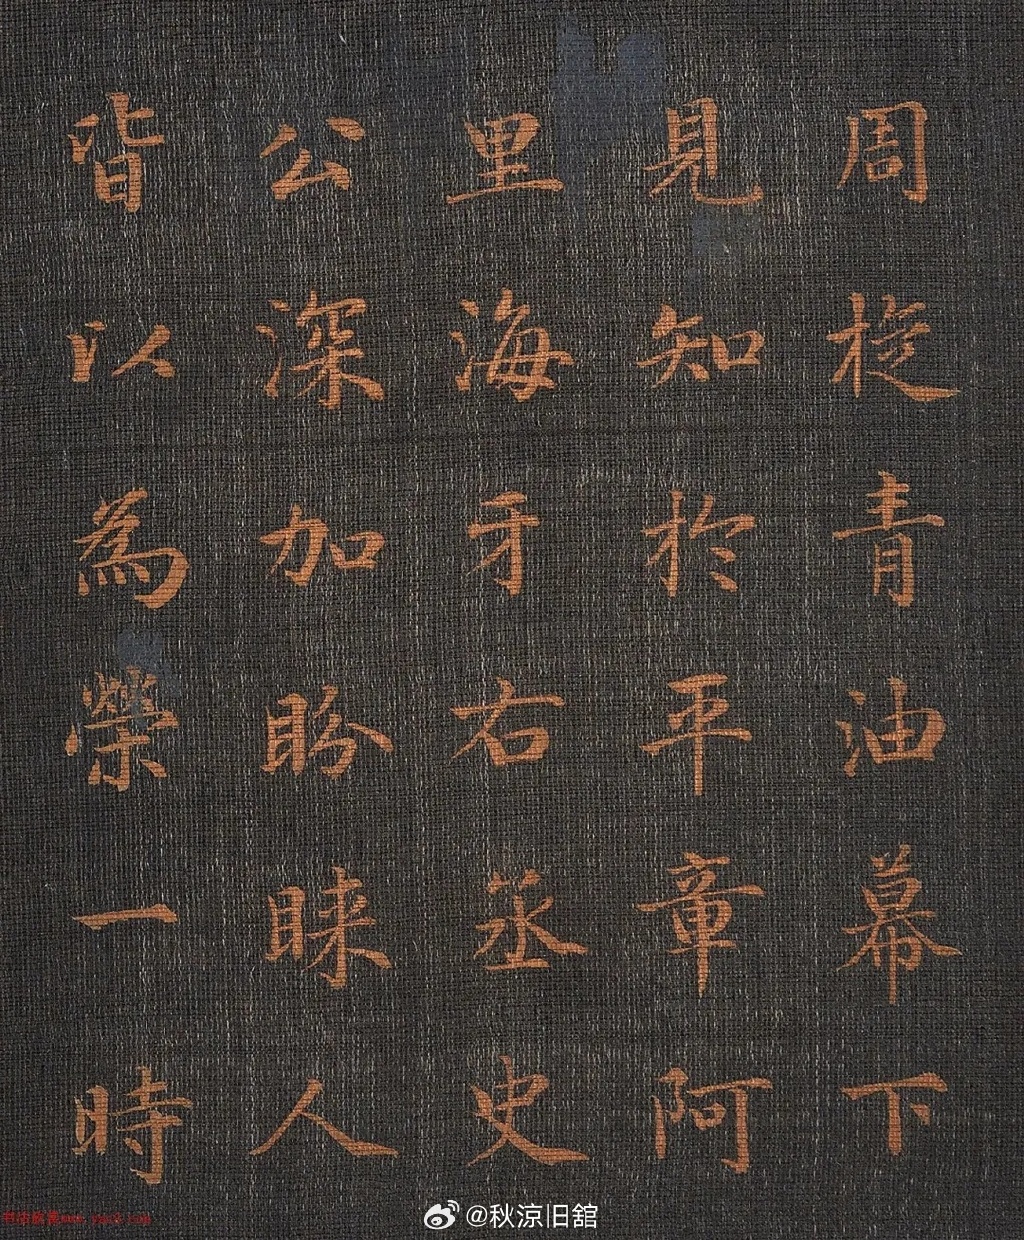 周旋青油幕下
見知於平章阿
里海牙右丞史
公深加盼睞人
皆以為榮一時
@秋涼旧舘